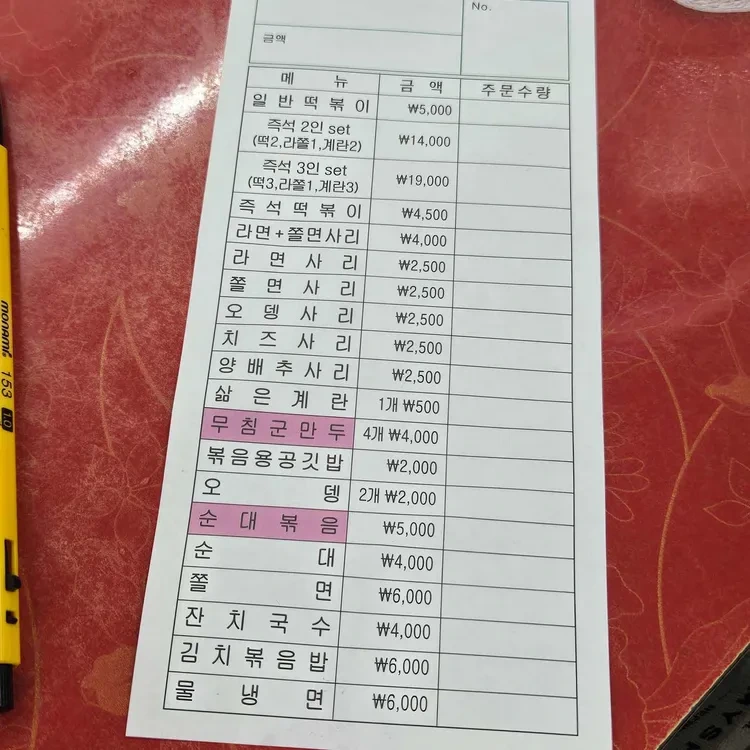 No.
금액
메 뉴 금 액 주문수량
일반떡볶이 ₩5,000
즉석 2인 set
(떡2,라쫄1,계란2) ₩14,000
즉석 3인 set
(떡3,라쫄1,계란3) ₩19,000
즉석떡볶이 ₩4,500
라면+쫄면사리 ₩4,000
라면사리 ₩2,500
쫄면사리 ₩2,500
오뎅사리 ₩2,500
치즈사리 ₩2,500
양배추사리 ₩2,500
삶은계란 1개 ₩500
무침군만두 4개 ₩4,000
볶음용공깃밥 ₩2,000
오뎅 2개 ₩2,000
순대볶음 ₩5,000
순대 ₩4,000
쫄면 ₩6,000
잔치국수 ₩4,000
김치볶음밥 ₩6,000
물냉면 ₩6,000
monami 153 1.0